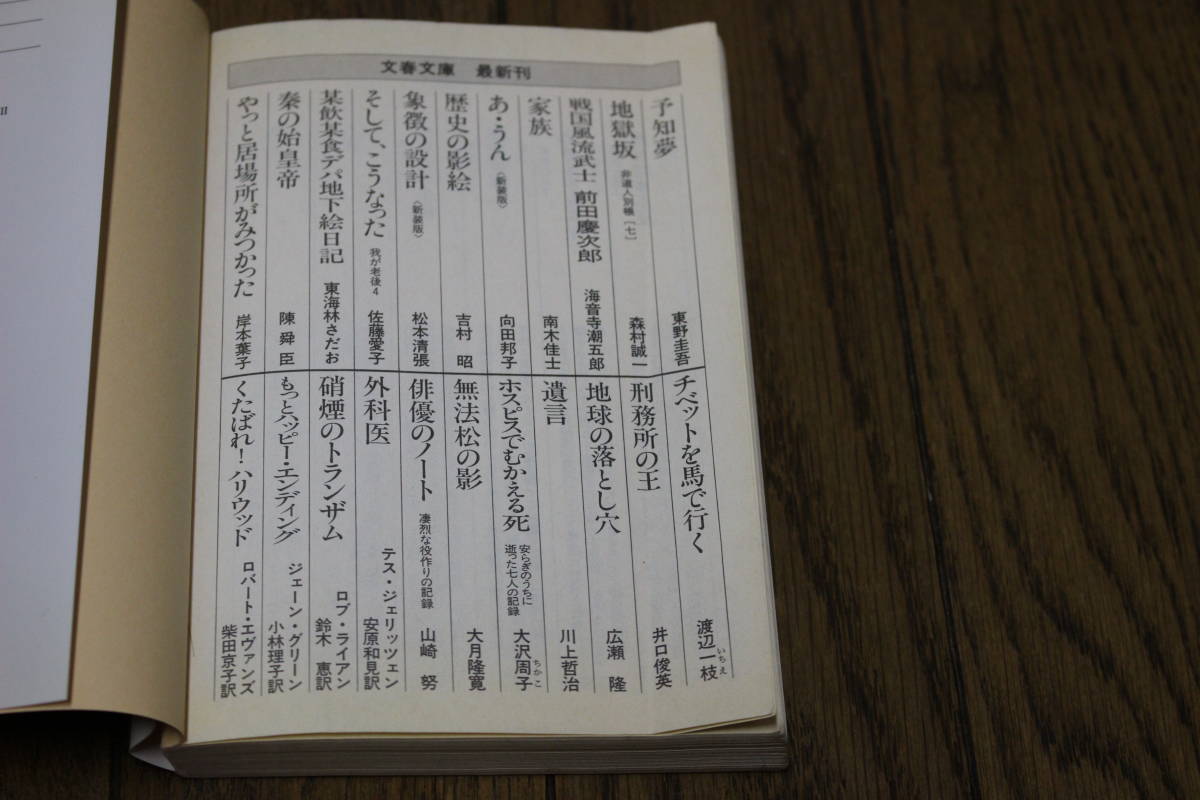 II
文春文庫　最新刊
予知夢　東野圭吾
地獄坂　非道人別帳〔七〕　森村誠一
戦国風流武士　前田慶次郎　海音寺潮五郎
家族　南木佳士
あ・うん〈新装版〉　向田邦子
歴史の影絵　吉村　昭
象徴の設計〈新装版〉　松本清張
そして、こうなった　我が老後4　佐藤愛子
某飲某食デパ地下絵日記　東海林さだお
秦の始皇帝　陳　舜　臣
やっと居場所がみつかった　岸本葉子
チベットを馬で行く　渡辺一枝
いちえ
刑務所の王　井口俊英
地球の落とし穴　広瀬　隆
遺言　川上哲治
ホスピスでむかえる死　安らぎのうちに
逝った七人の記録　大沢周子
ちかこ
無法松の影　大月隆寛
俳優のノート　凄烈な役作りの記録　山﨑　努
外科医　テス・ジェリッツェン
安原和見訳
硝煙のトランザム　ロブ・ライアン
鈴木　恵訳
もっとハッピー・エンディング　ジェーン・グリーン
小林理子訳
くたばれ！ハリウッド　ロバート・エヴァンズ
柴田京子訳